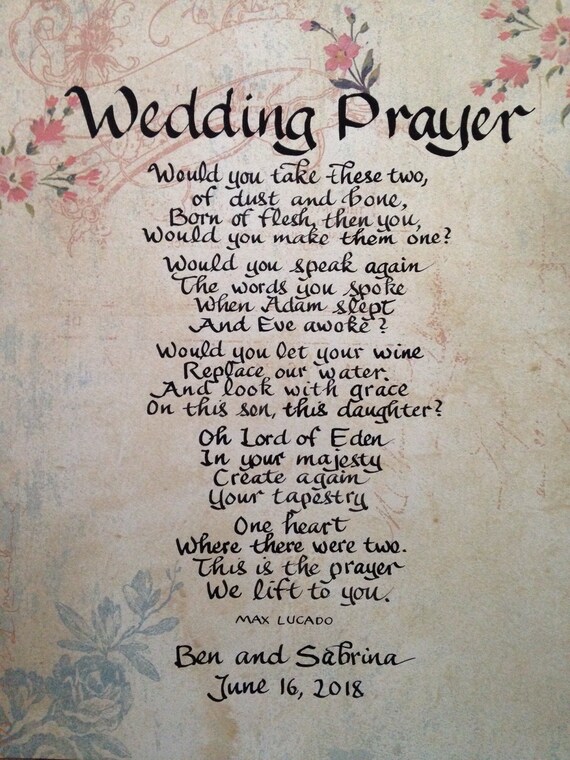 Wedding Prayer
Would you take these two,
of dust and bone,
Born of flesh, then you,
Would you make them one?
Would you speak again
The words you spoke
When Adam slept
And Eve awoke?
Would you let your wine
Replace our water.
And look with grace
On this son, this daughter?
Oh Lord of Eden
In your majesty
Create again
Your tapestry
One heart
Where there were two.
This is the prayer
We lift to you.
MAX LUCADO
Ben and Sabrina
June 16, 2018